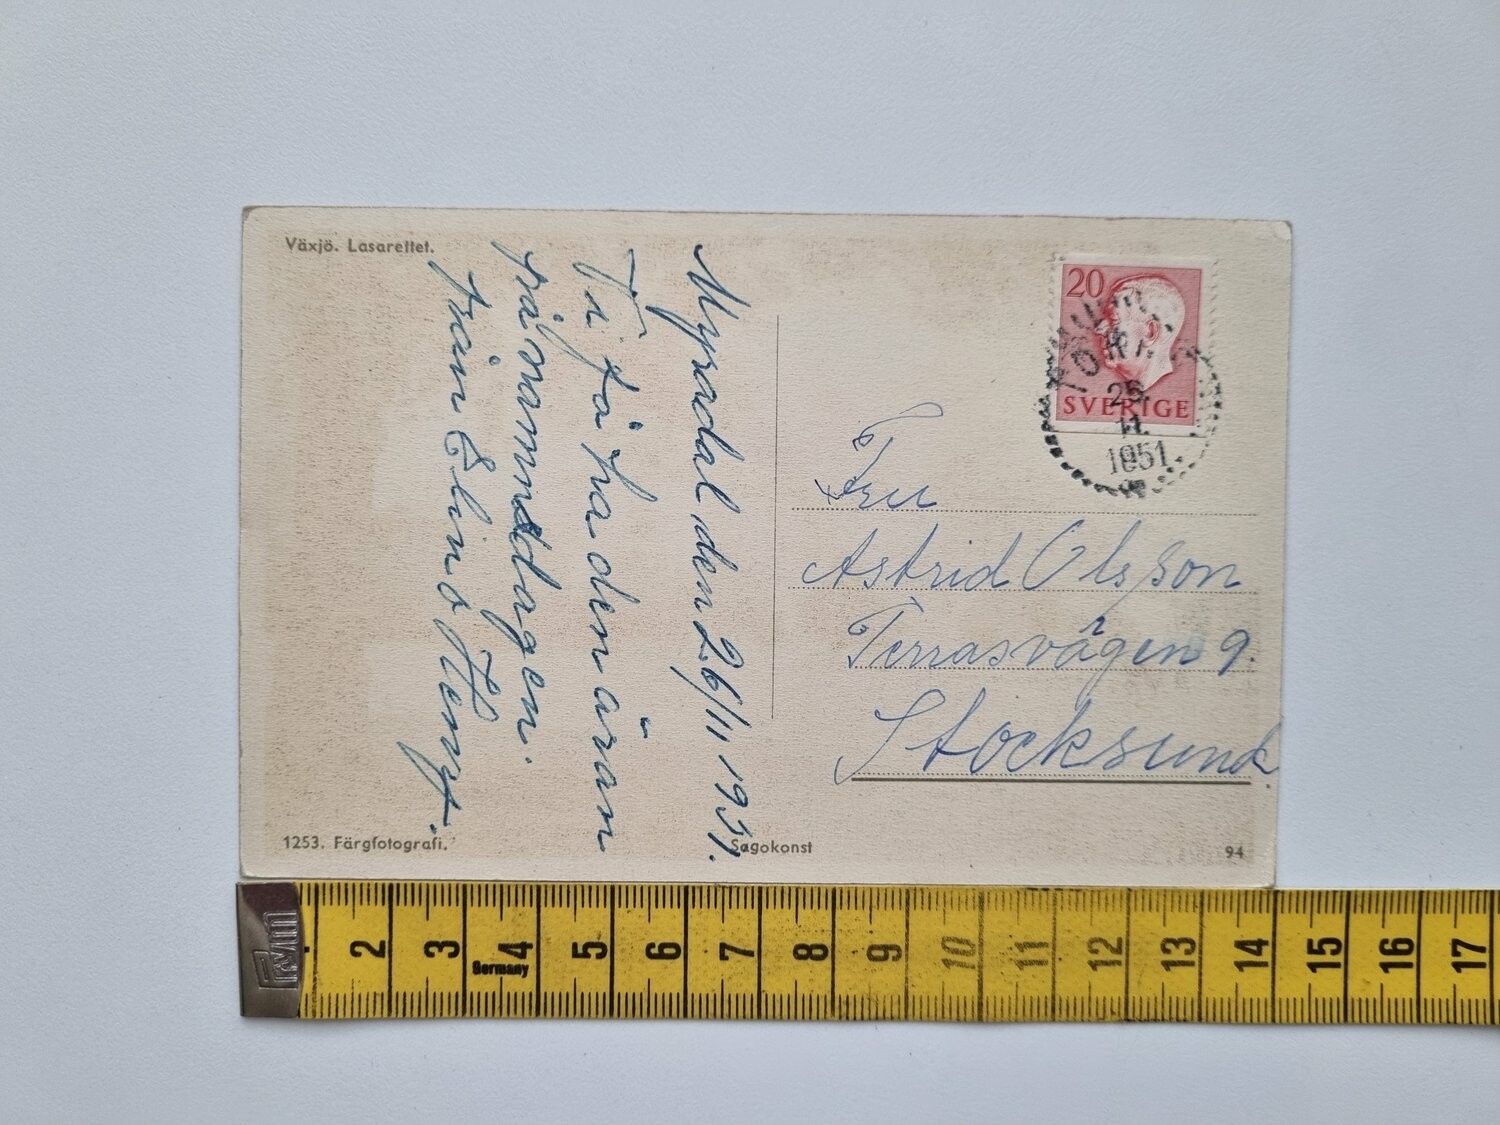 Växjö. Lasarettet.
Myradal, den 26/11 1951.
Vi få ha den äran
på namnsdagen.
från Elin o Henry.
20
SVERIGE
25.
11.
1951.
Fru
Astrid Olsson
Terrasvägen 9.
Stocksund.
1253. Färgfotografi.
Sagokonst
94
PRYM
2 3 4 5 6 7 8 9 10 11 12 13 14 15 16 17
Germany